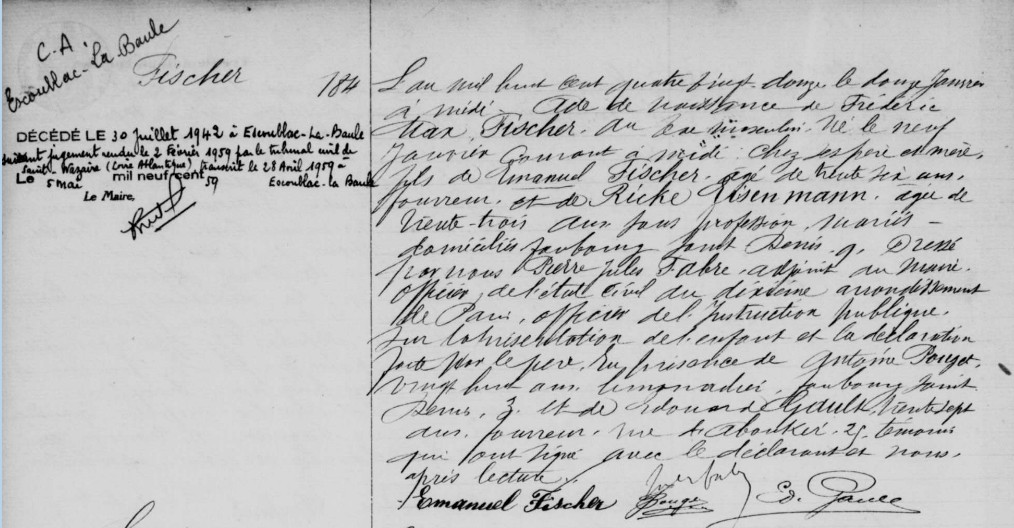 C.A.
Escoublac-La Baule
Fischer
184
DÉCÉDÉ LE 30 Juillet 1942 à Escoublac-La-Baule
suivant jugement rendu le 2 Février 1959 par le tribunal civil de
Saint-Nazaire (Loire Atlantique) transcrit le 28 Avril 1959 à
Escoublac-la Baule
Le 5 Mai mil neuf cent 59
Le Maire,
L'an mil huit cent quatre vingt douze le douze Janvier
à midi - Acte de naissance de Fréderic
Max Fischer, du sexe masculin. Né le neuf
Janvier courant à midi chez ses père et mère,
fils de Emanuel Fischer, âgé de trente six ans,
fourreur, et de Ricke Eisenmann, âgée de
trente-trois ans sans profession, mariés -
domiciliés faubourg Saint Denis, 9, Dressé
par nous Pierre Jules Fabre, adjoint au Maire,
officier de l'état civil du dixième arrondissement
de Paris, officier de l'Instruction publique,
sur la présentation de l'enfant et la déclaration
faite par le père, en présence de Antoine Pouget,
vingt huit ans, limonadier, faubourg Saint
Denis, 3, et de Edouard Gault, trente sept
ans, fourreur, rue d'Aboukir, 25, témoins
qui ont signé avec le déclarant et nous,
après lecture.
Emanuel Fischer Pouget Ed. Gault